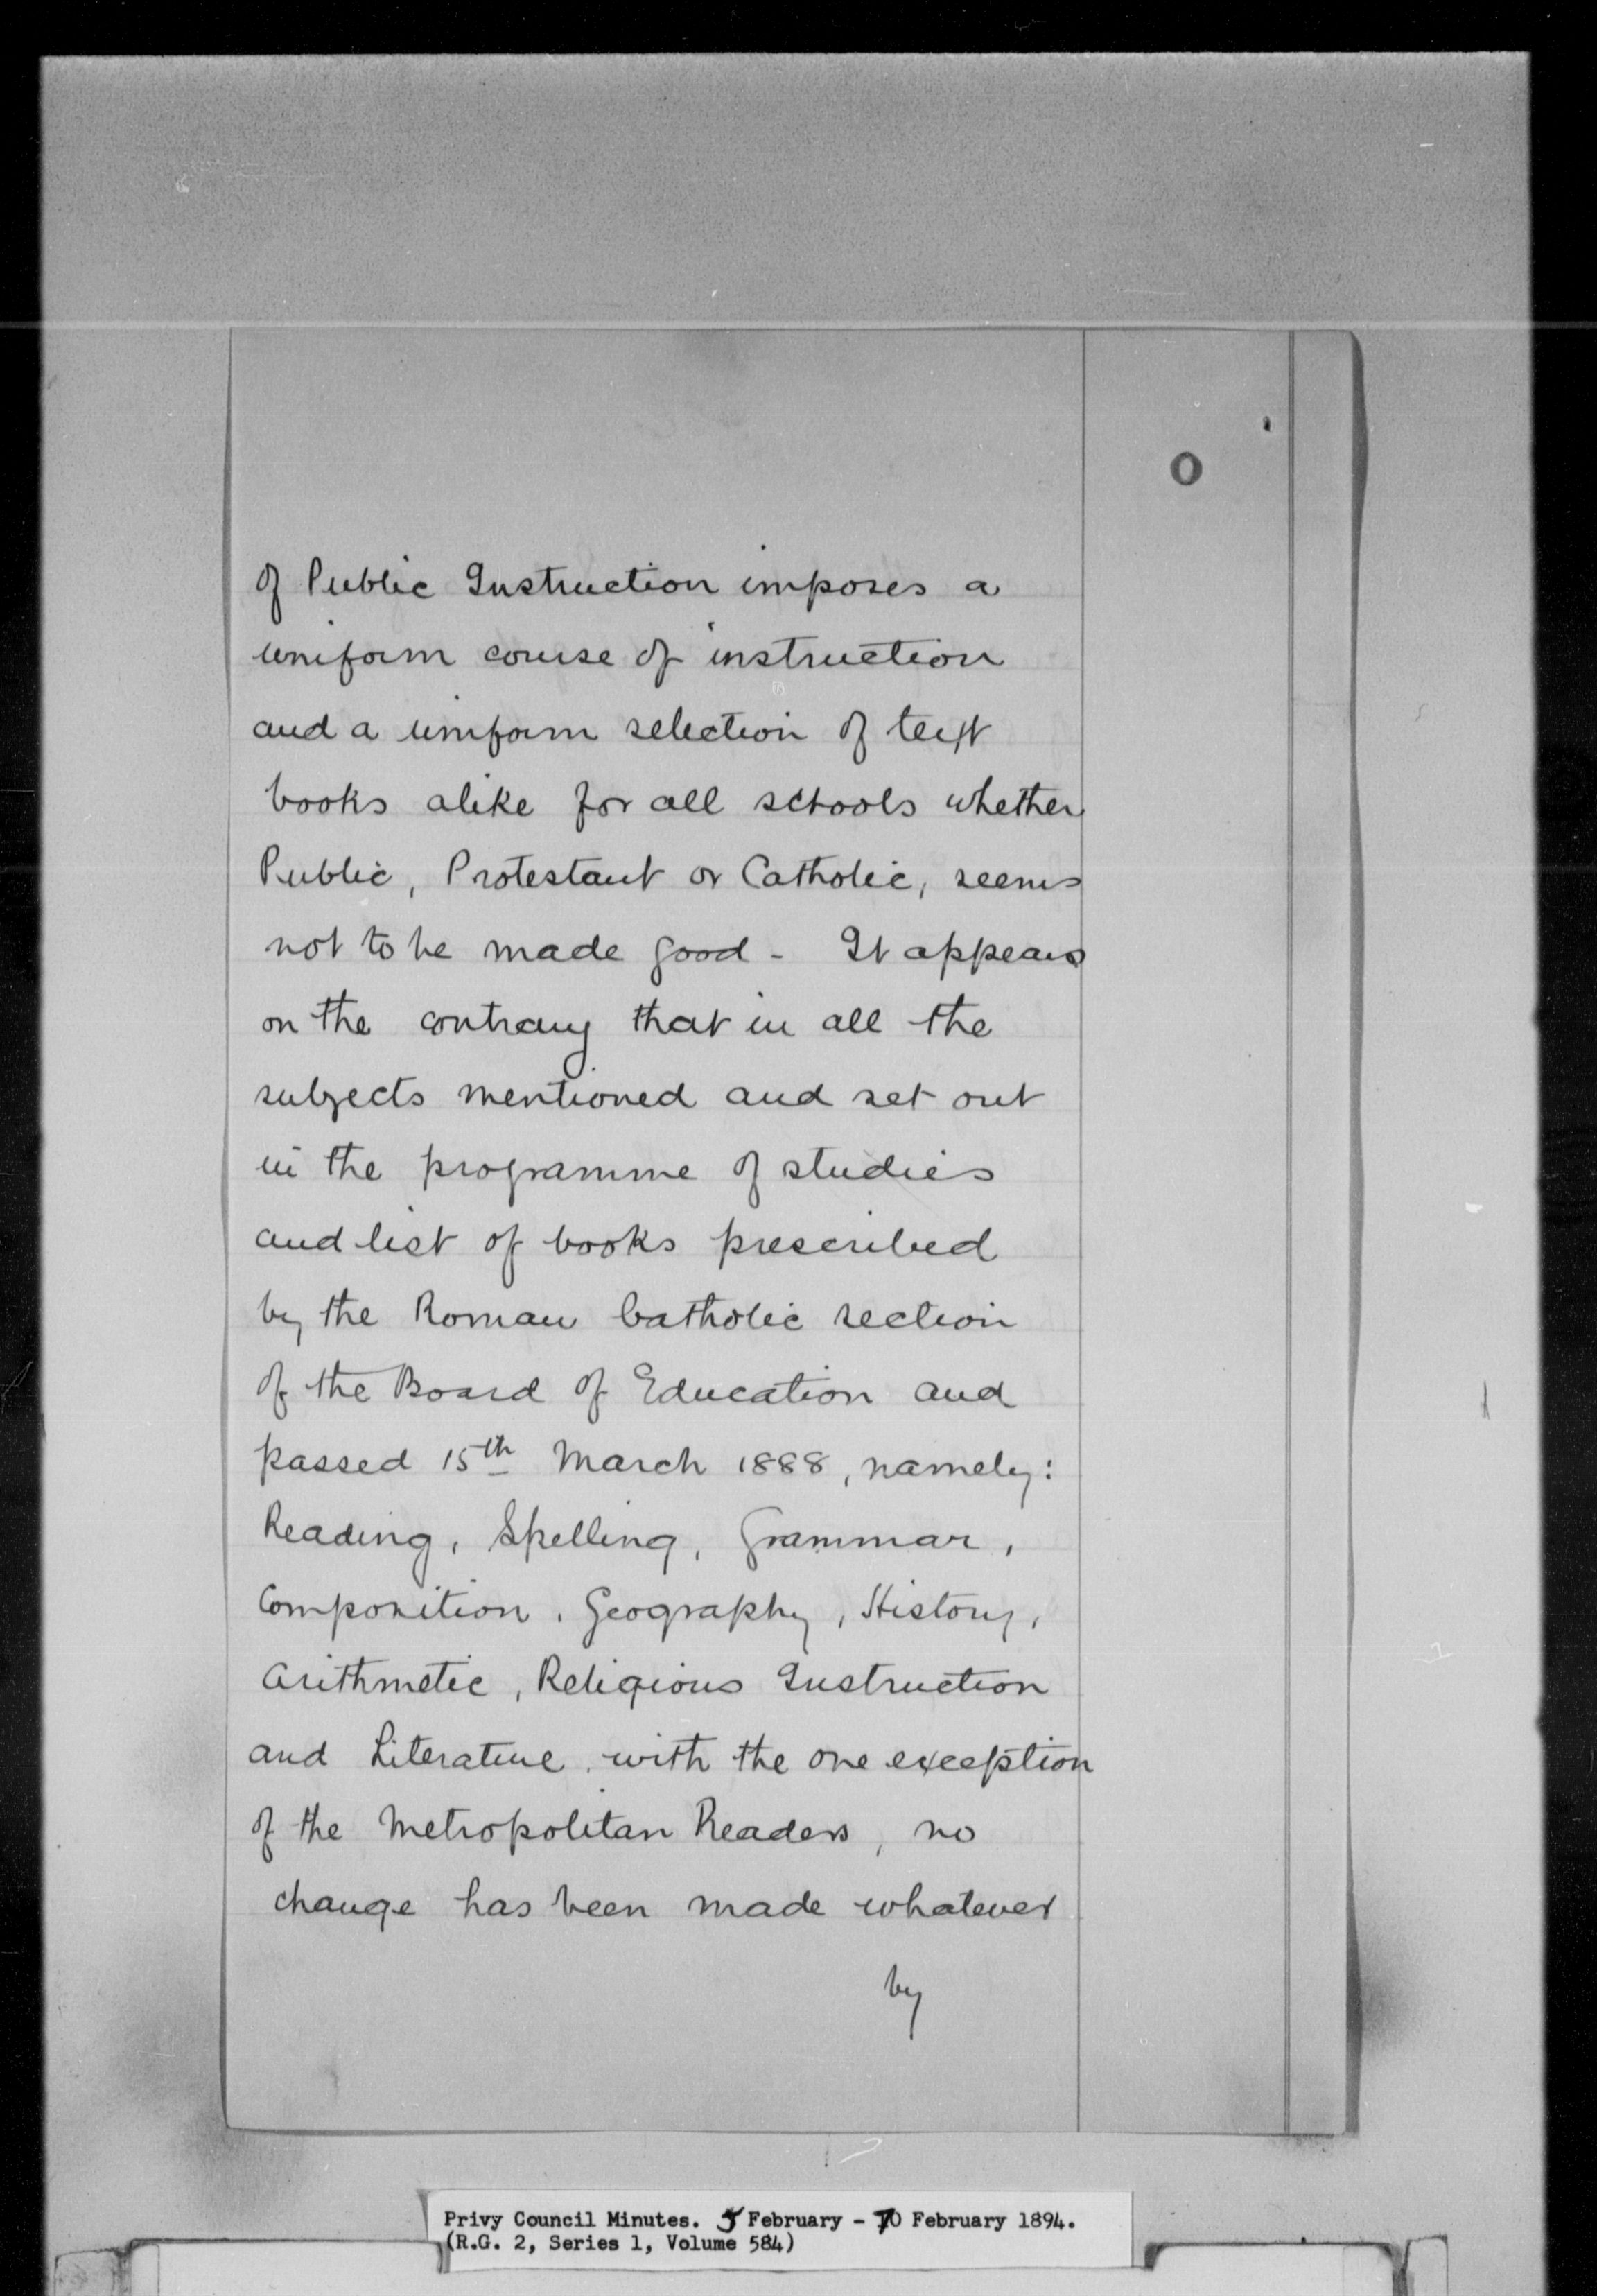 O
of Public Instruction imposes a
uniform course of instruction
and a uniform selection of text
books alike for all schools whether
Public, Protestant or Catholic, seems
not to be made good - It appears
on the contrary that in all the
subjects mentioned and set out
in the programme of studies
and list of books prescribed
by the Roman Catholic section
of the Board of Education and
passed 15th March 1888, namely:
Reading, Spelling, Grammar,
Composition, Geography, History,
Arithmetic, Religious Instruction
and Literature, with the one exception
of the Metropolitan Readers, no
change has been made whatever
by
Privy Council Minutes. 5 February - 10 February 1894.
(R.G. 2, Series 1, Volume 584)